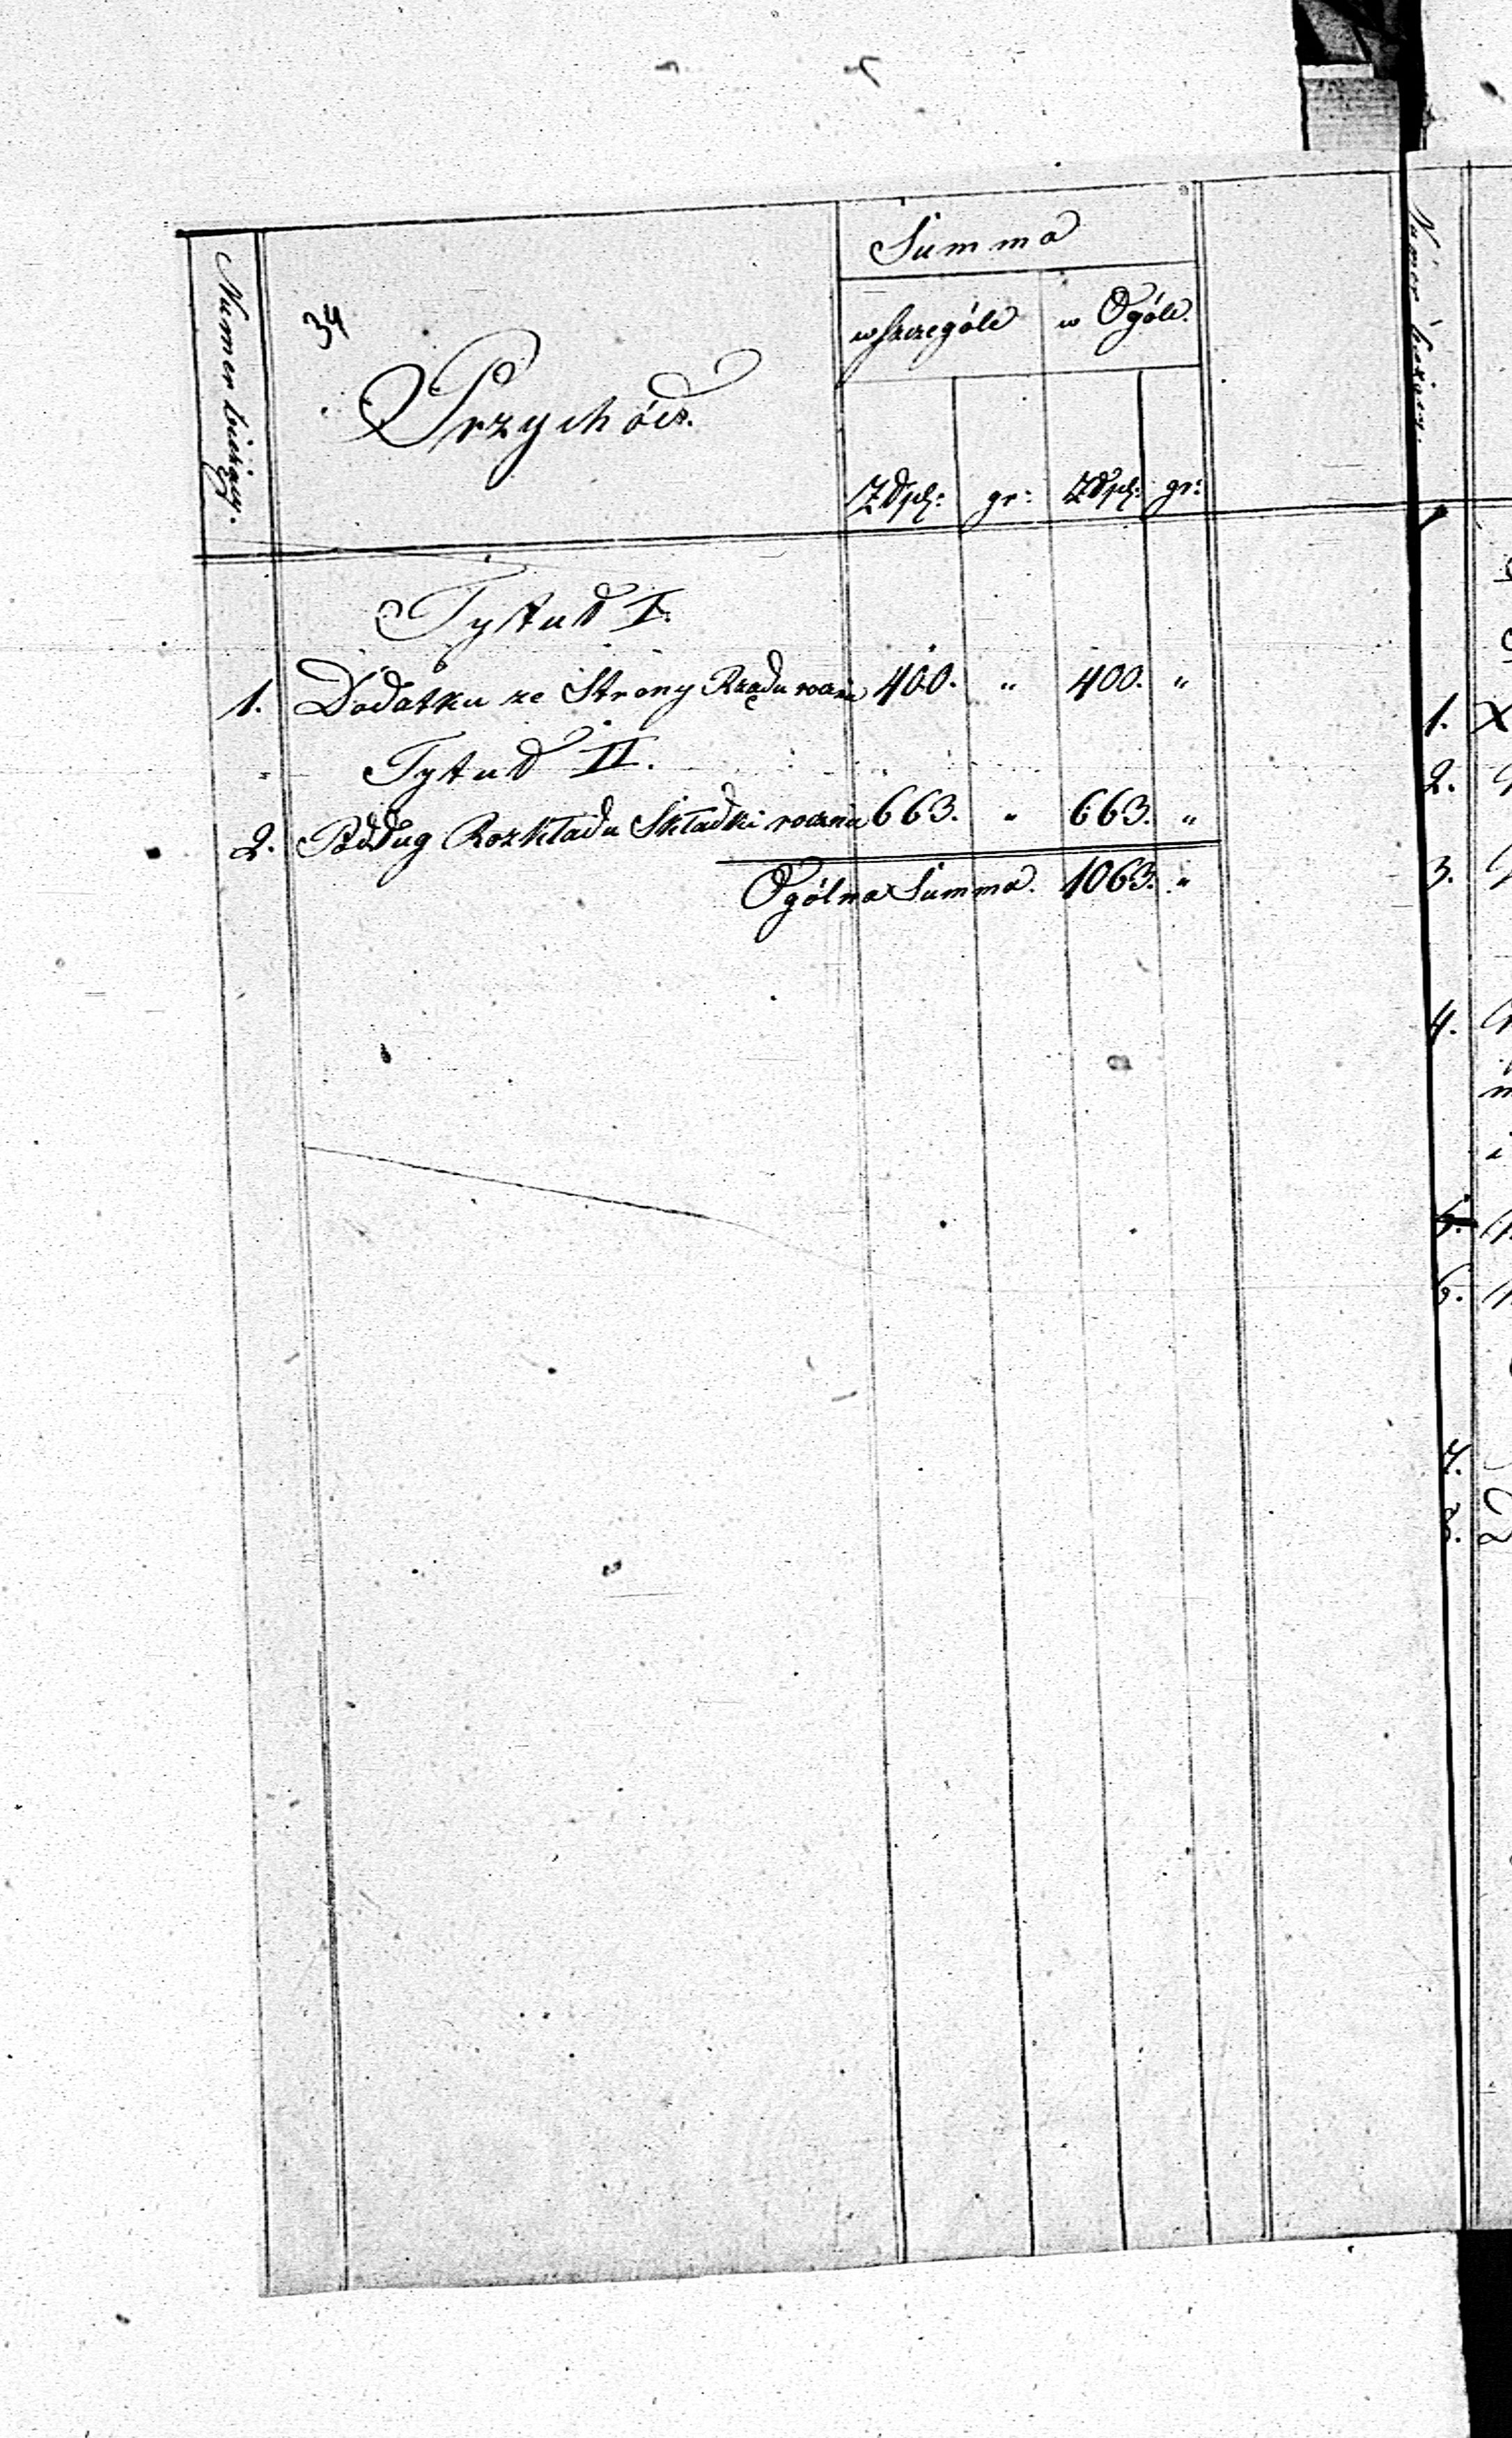 Summa
Numer bieżący.
34
w szczególe
w Ogóle.
Przychód.
Złpl:
gr:
Złpl:
gr:
Tytuł I.
1. Dodatku ze Strony Rządu rocznie 400. " 400. "
Tytuł II.
2. Podług Rozkładu Składki rocznie 663. " 663. "
Ogólna Summa. 1063. "
Numer bieżący.
1.
2.
3.
4.
5.
6.
7.
8.